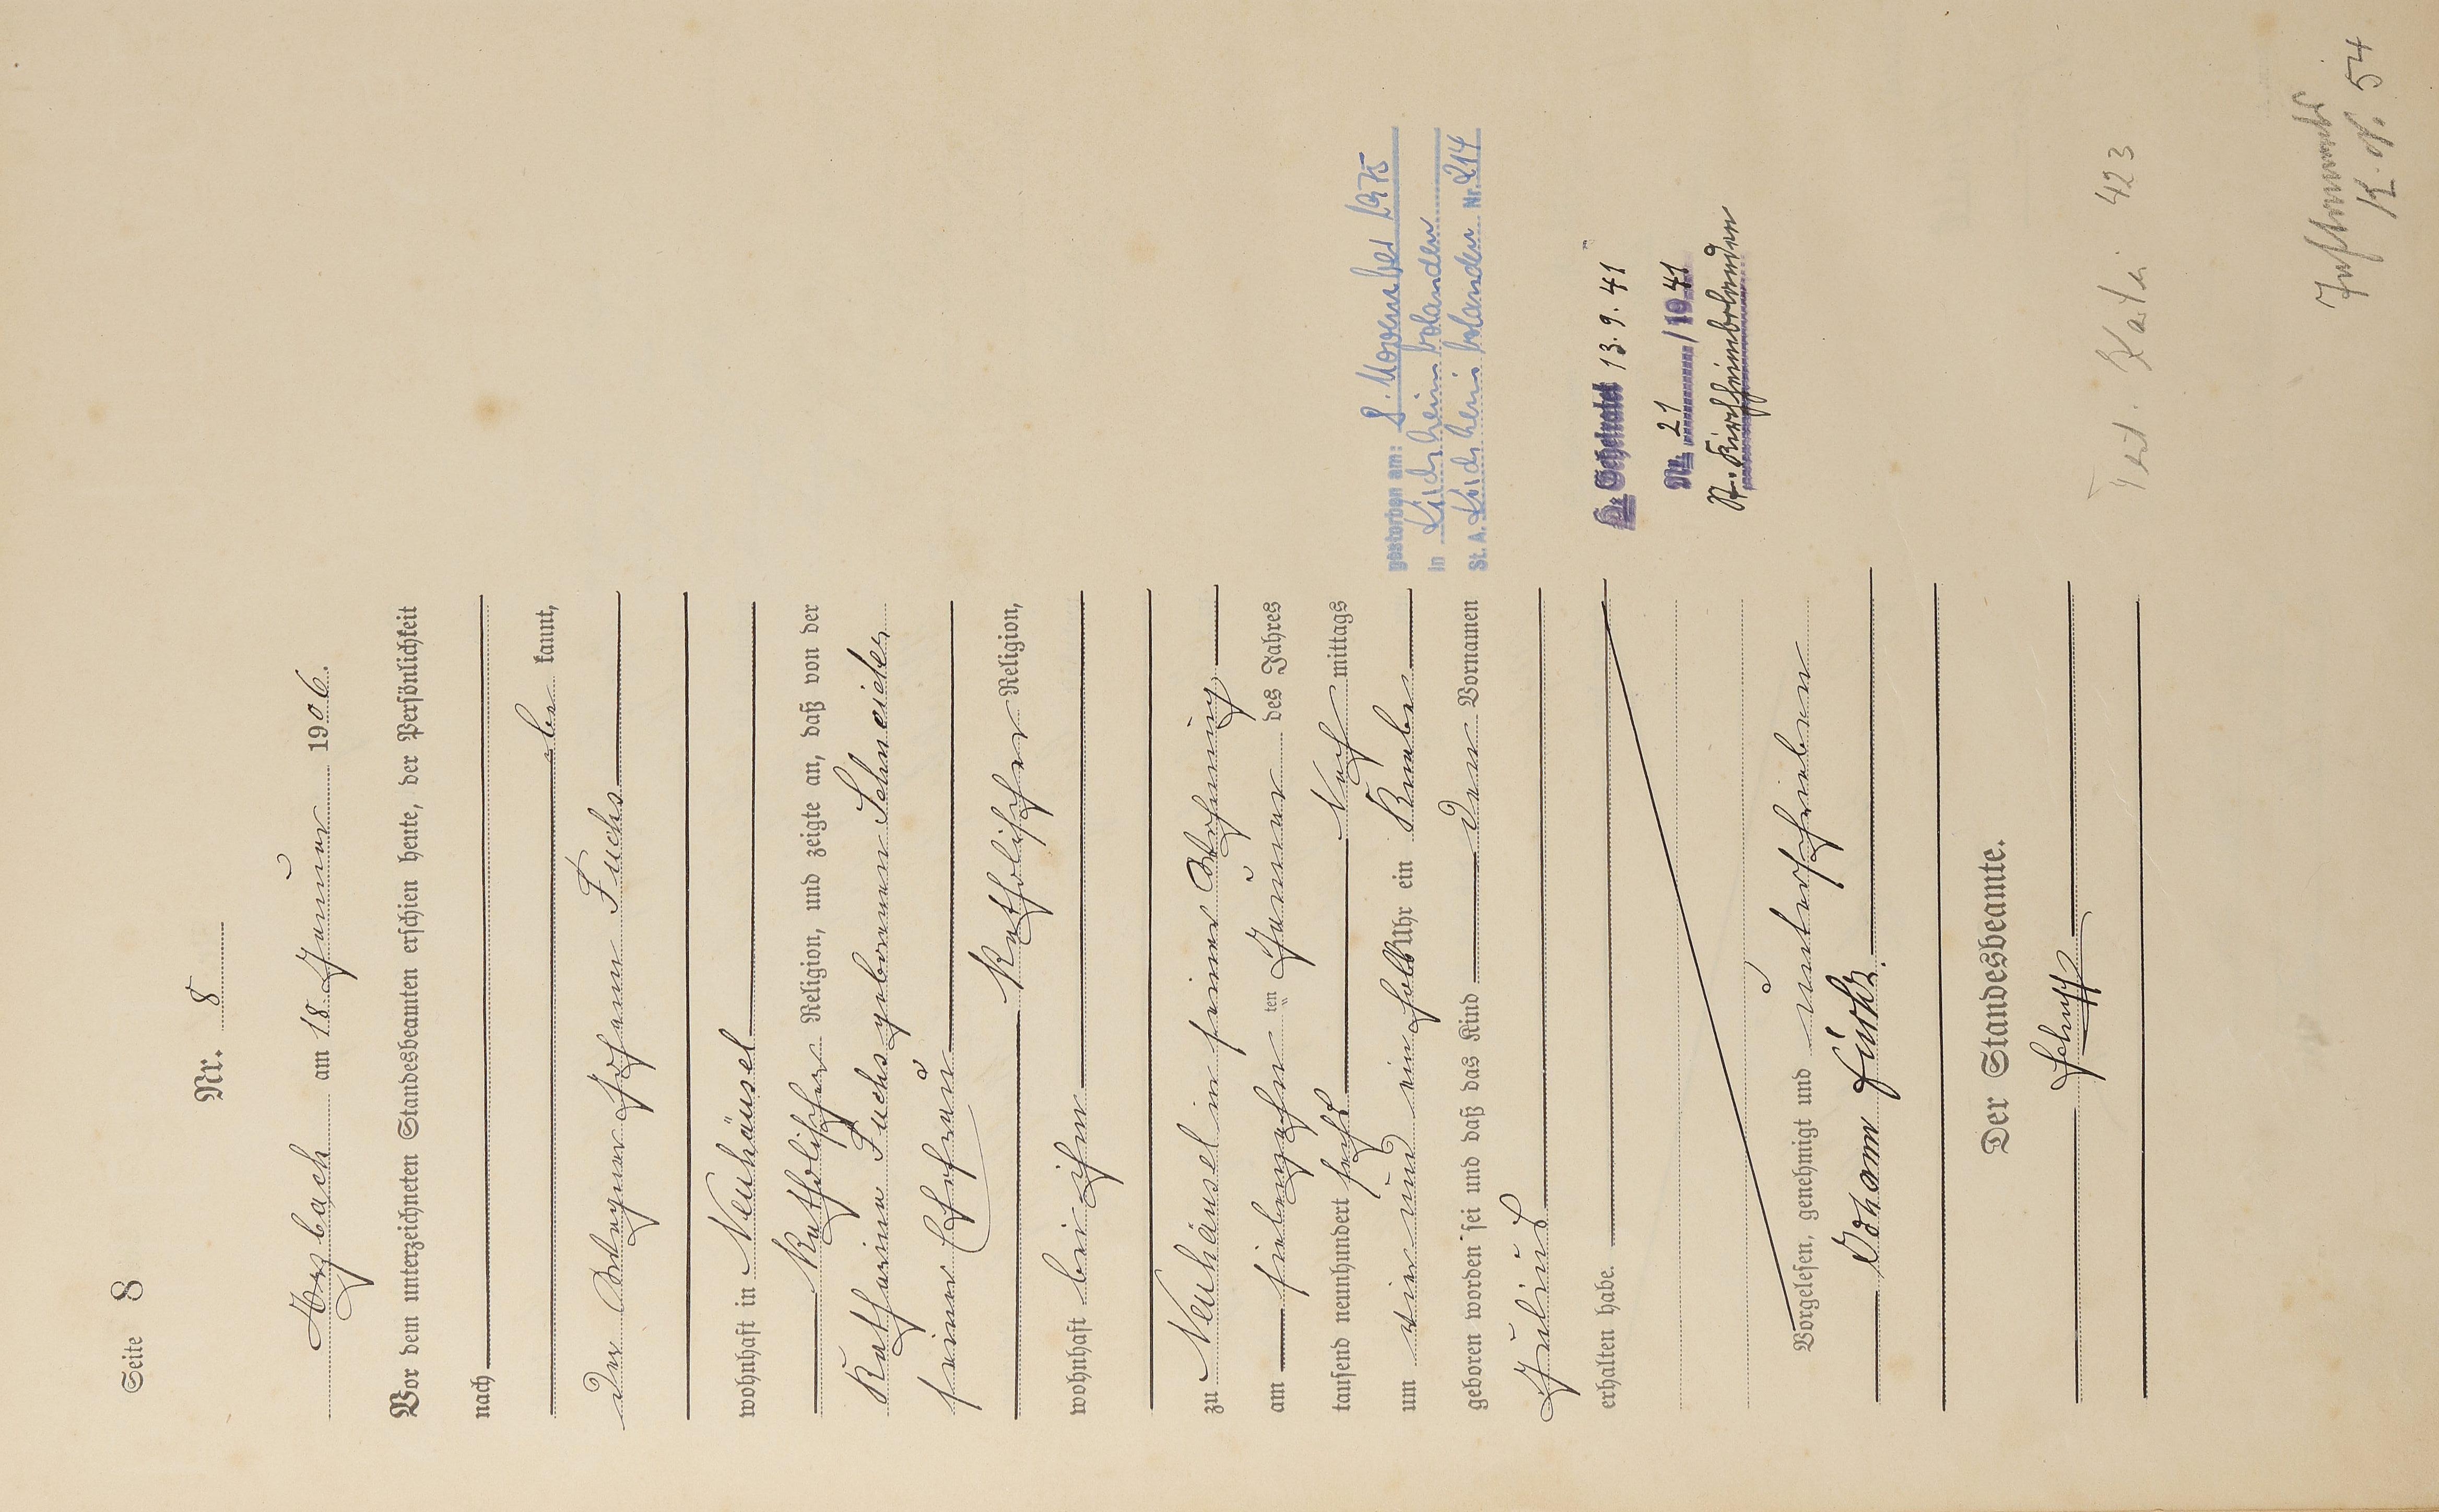 Seite 8
Nr. 8
am 18. Januar 1906.
Vor dem unterzeichneten Standesbeamten erschien heute, der Persönlichkeit
nach
be kannt,
der Wagner Johann Fuchs
wohnhaft in Neuhäusel
katholischer Religion, und zeigte an, daß von der
Katharina Fuchs geborenen Schneider
seiner Ehefrau
katholischer Religion,
wohnhaft bei ihm
zu Neuhäusel in seiner Wohnung
am siebenzehn ten Januar des Jahres
tausend neunhundert sechs Nach mittags
um vier und ein halb Uhr ein Knabe
geboren worden sei und daß das Kind den Vornamen
Julius
erhalten habe.
Vorgelesen, genehmigt und unterschrieben
Johann Fuchs.
Der Standesbeamte.
gestorben am: 8. November 1975
in Kirchheimbolanden
St. A. Kirchheimbolanden Nr. 214
Geheiratet 13.9.41
Nr. 21 / 1941
St. Kirchheimbolanden
423
54